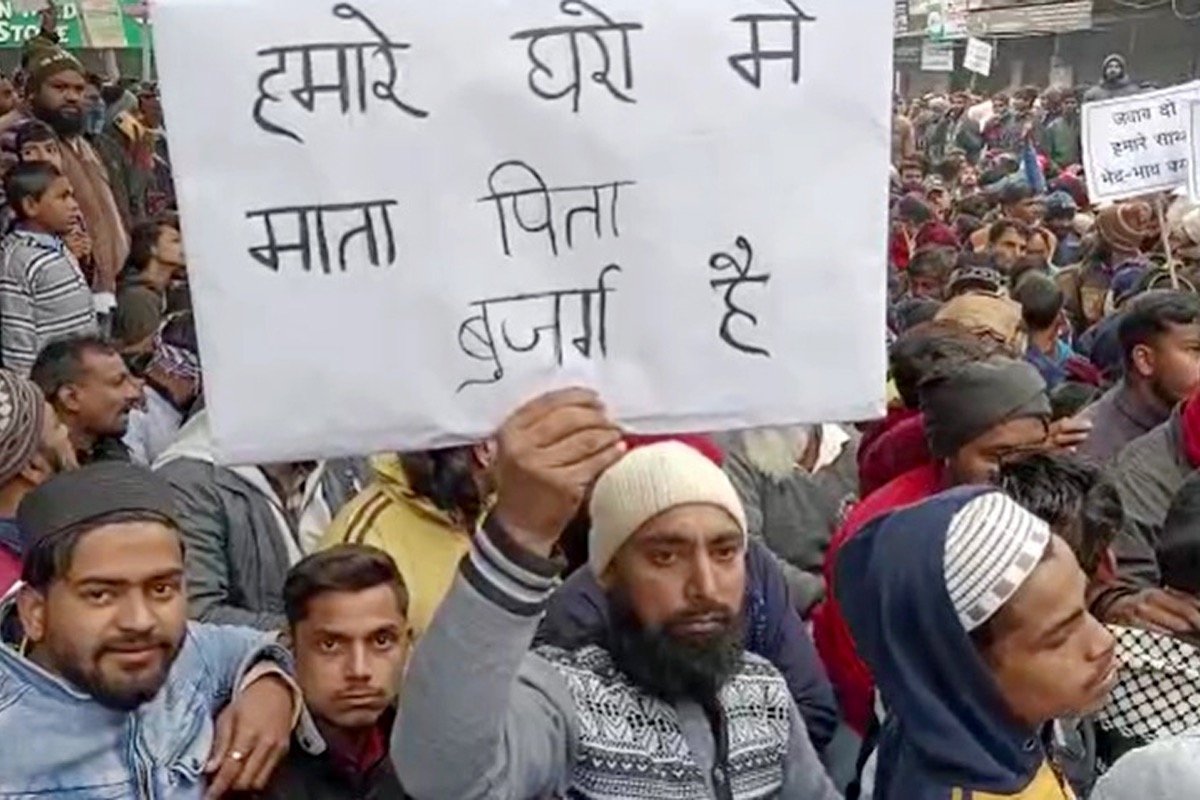 हमारे घरो मे
माता पिता
बुजर्ग है
जवाव दो
हमारे साथ
भेद-भाव
STORE